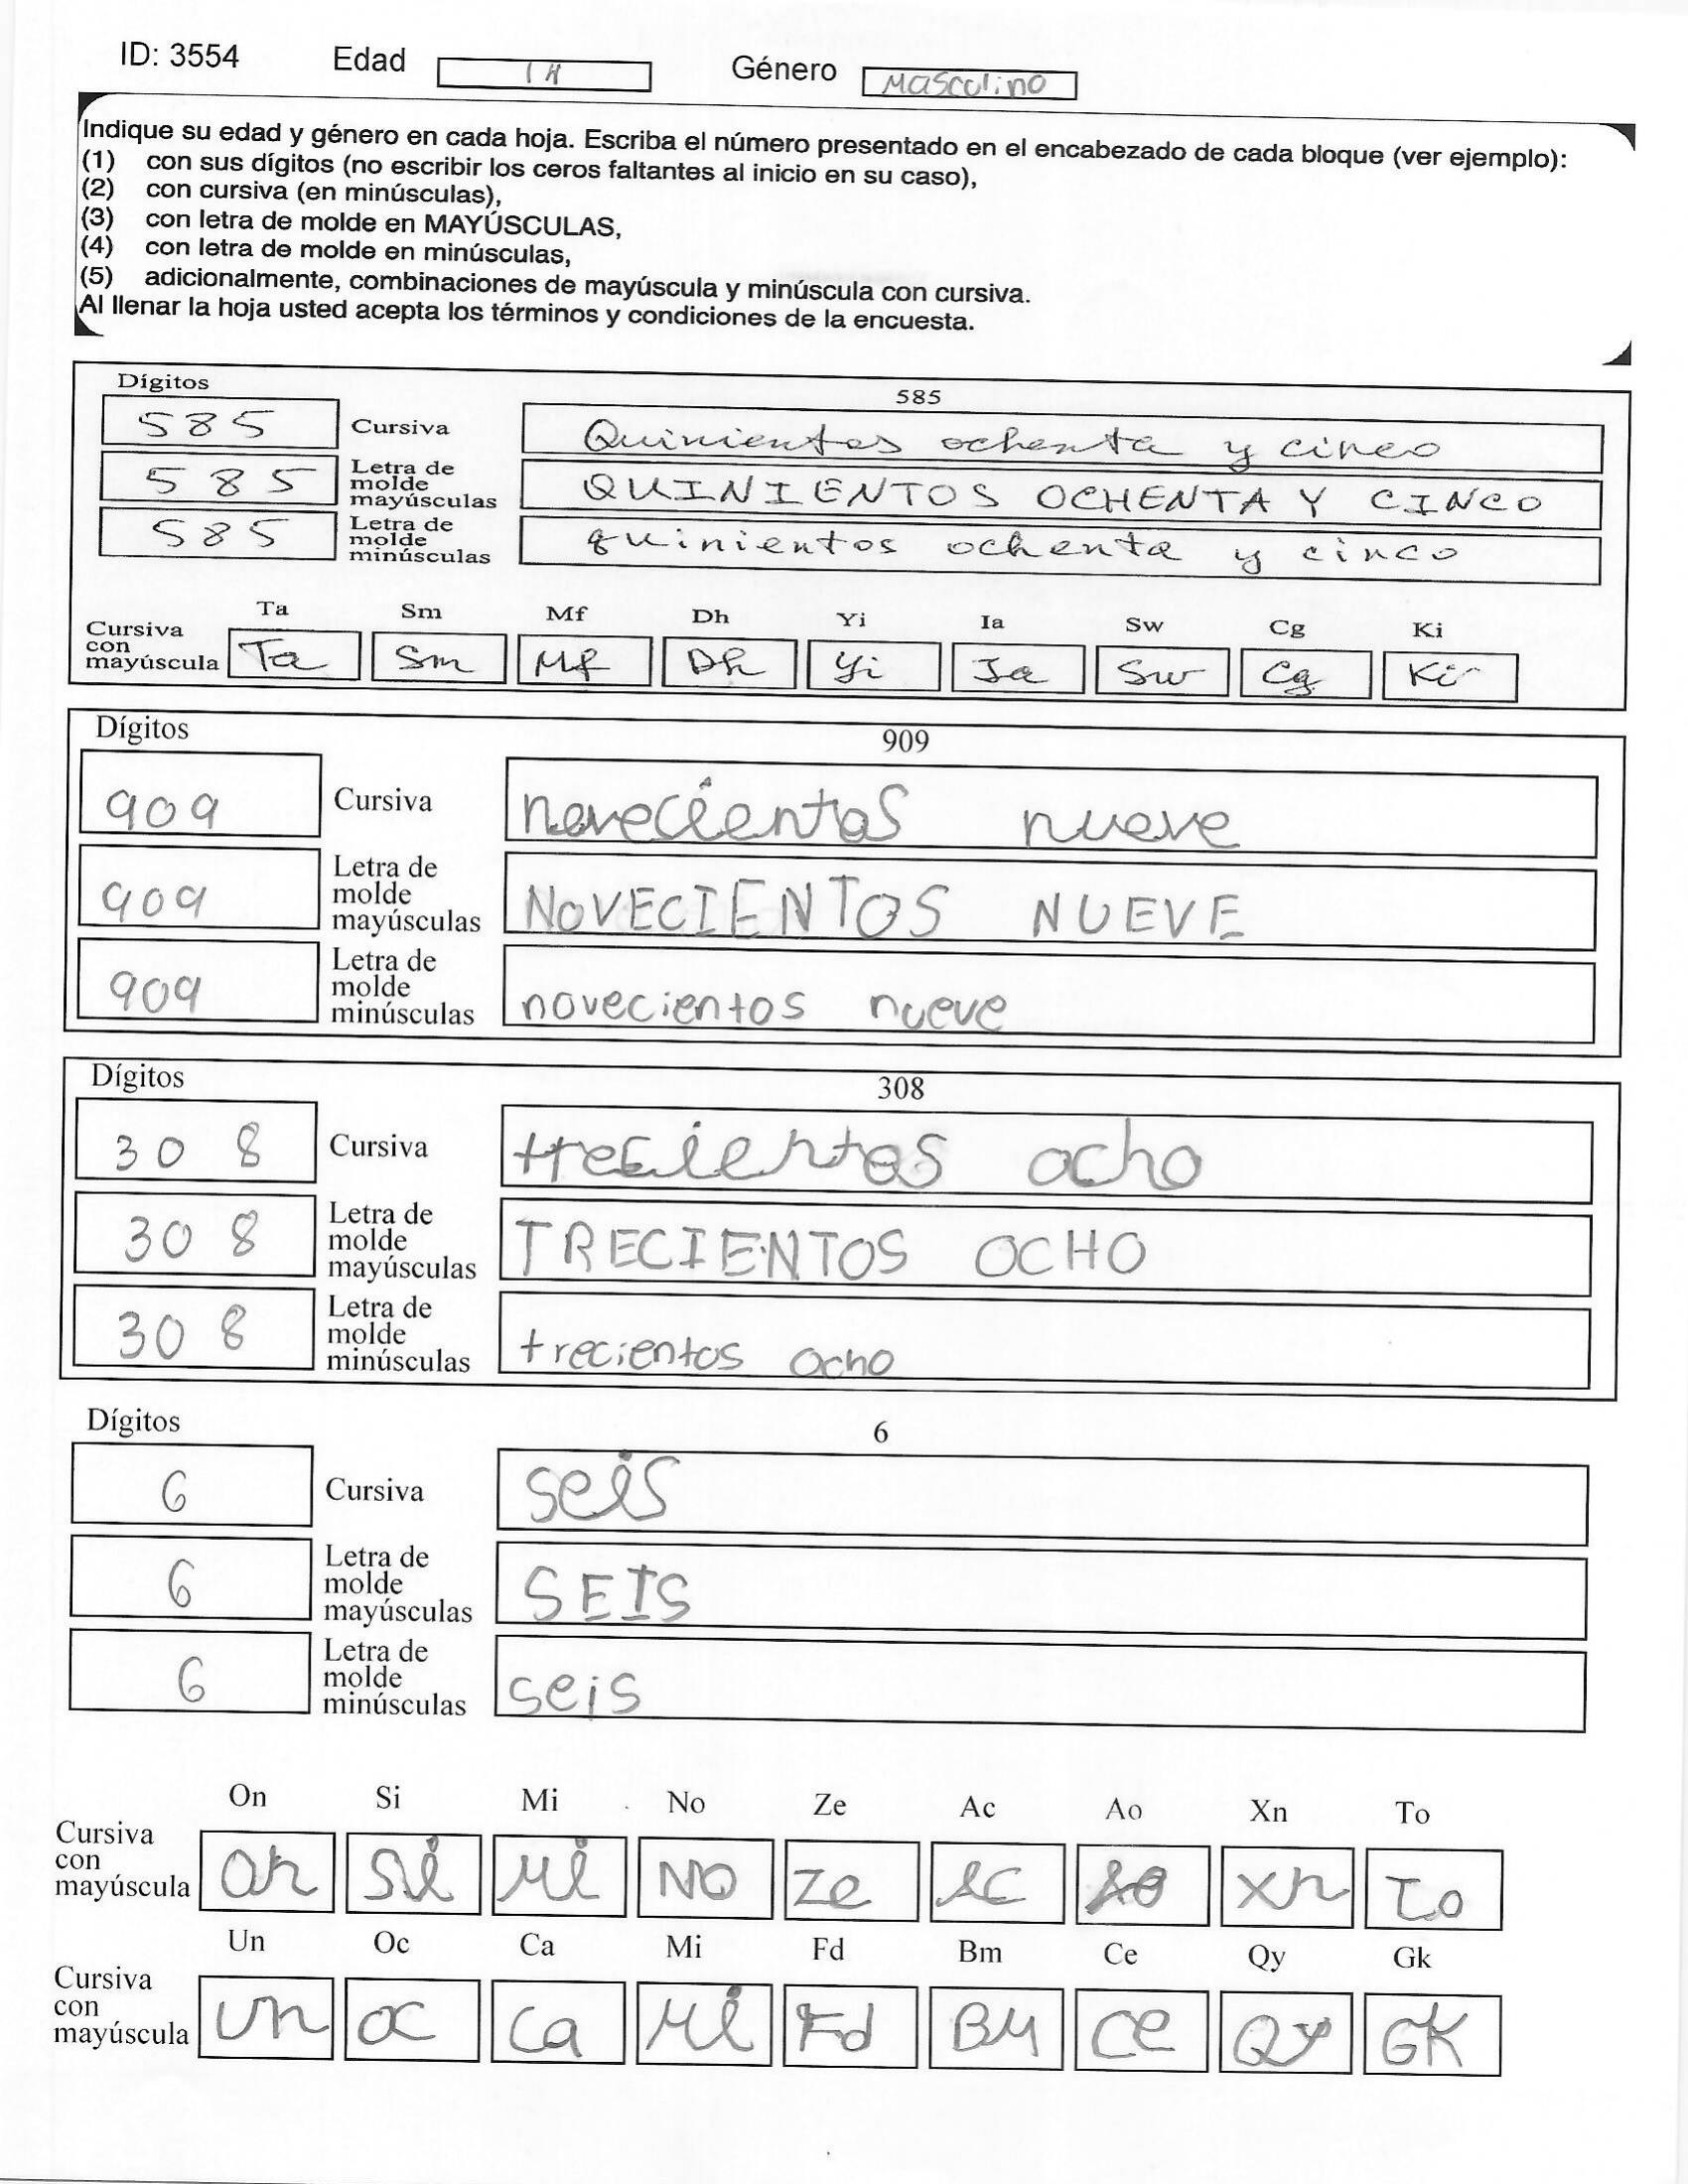 ID: 3554 Edad 14 Género Masculino
Indique su edad y género en cada hoja. Escriba el número presentado en el encabezado de cada bloque (ver ejemplo):
(1) con sus dígitos (no escribir los ceros faltantes al inicio en su caso),
(2) con cursiva (en minúsculas),
(3) con letra de molde en MAYÚSCULAS,
(4) con letra de molde en minúsculas,
(5) adicionalmente, combinaciones de mayúscula y minúscula con cursiva.
Al llenar la hoja usted acepta los términos y condiciones de la encuesta.
Dígitos 585
585 Cursiva Quinientos ochenta y cinco
585 Letra de molde mayúsculas QUINIENTOS OCHENTA Y CINCO
585 Letra de molde minúsculas quinientos ochenta y cinco
Ta Sm Mf Dh Yi Ia Sw Cg Ki
Cursiva con mayúscula Ta Sm Mf Dh Yi Ia Sw Cg Ki
Dígitos 909
909 Cursiva novecientos nueve
909 Letra de molde mayúsculas NOVECIENTOS NUEVE
909 Letra de molde minúsculas novecientos nueve
Dígitos 308
30 8 Cursiva trecientos ocho
30 8 Letra de molde mayúsculas TRECIENTOS OCHO
30 8 Letra de molde minúsculas trecientos ocho
Dígitos 6
6 Cursiva seis
6 Letra de molde mayúsculas SEIS
6 Letra de molde minúsculas seis
On Si Mi No Ze Ac Ao Xn To
Cursiva con mayúscula On Si Mi NO Ze Ac Ao Xn To
Un Oc Ca Mi Fd Bm Ce Qy Gk
Cursiva con mayúscula Un Oc Ca Mi Fd BM Ce Qy GK